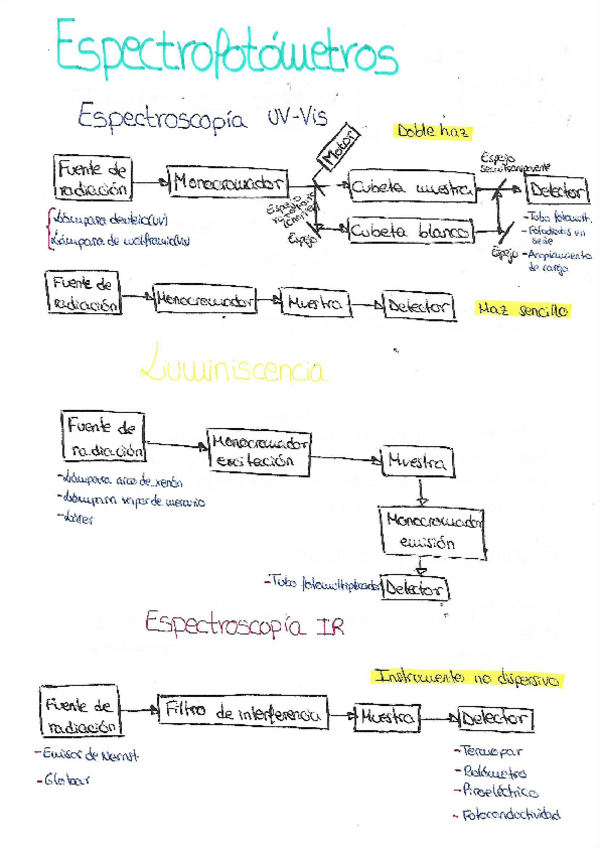 Espectrofotómetros
Espectroscopía UV-Vis
Doble haz
Fuente de
radiación
Monocromador
Motor
Espejo
Espejo
Cubeta muestra
Cubeta blanco
Espejo
semitransparente
Espejo
Detector
-Lámpara deuterio (UV)
-Lámpara de wolframio (Vis)
-Tubo fotomult.
-Fotodiodos en
serie
-Acoplamiento
de carga
Fuente de
radiación
Monocromador
Muestra
Detector
Haz sencillo
Luminiscencia
Fuente de
radiación
Monocromador
excitación
Muestra
-Lámpara arco de xenón
-Lámpara vapor de mercurio
-Láser
Monocromador
emisión
-Tubo fotomultiplicador
Detector
Espectroscopía IR
Instrumento no dispersivo
Fuente de
radiación
Filtro de interferencia
Muestra
Detector
-Emisor de Nernst.
-Globar
-Termopar
-Bolómetro
-Piroeléctrico
-Fotoconductividad